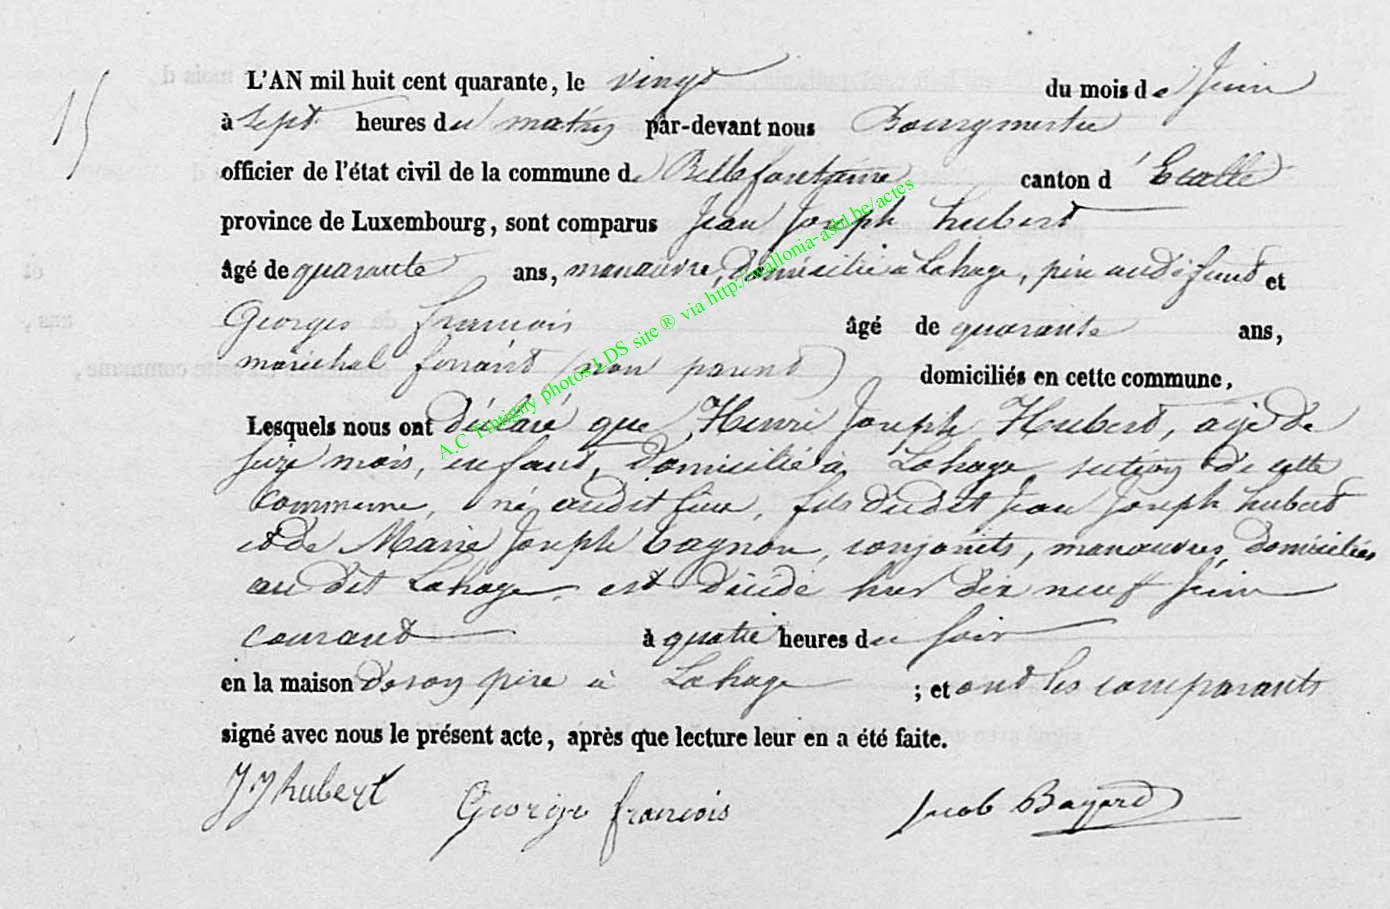 15
L'AN mil huit cent quarante, le vingt du mois de Juin
à sept heures du matin par-devant nous Bourgmestre
officier de l'état civil de la commune de Bellefontaine canton d'Etalle
province de Luxembourg, sont comparus Jean Joseph hubert
âgé de quarante ans, manœuvre, domicilié à Lahage, père au défunt et
Georges francois âgé de quarante ans,
maréchal ferrant (non parent) domiciliés en cette commune,
Lesquels nous ont déclaré que Henri Joseph Hubert, agé de
seize mois, enfant, domicilié à Lahage section de cette
commune, né audit lieu, fils dudit Jean Joseph hubert
et de Marie Joseph Gagnon, conjoints, manœuvres domiciliés
au dit Lahage, est décédé hier dix neuf Juin
courant à quatre heures du soir
en la maison de son père à Lahage ; et ont les comparants
signé avec nous le présent acte, après que lecture leur en a été faite.
J J hubert George francois Jacob Bayard
A.C Tintigny photos LDS site ® via http://wallonia-asbl.be/actes